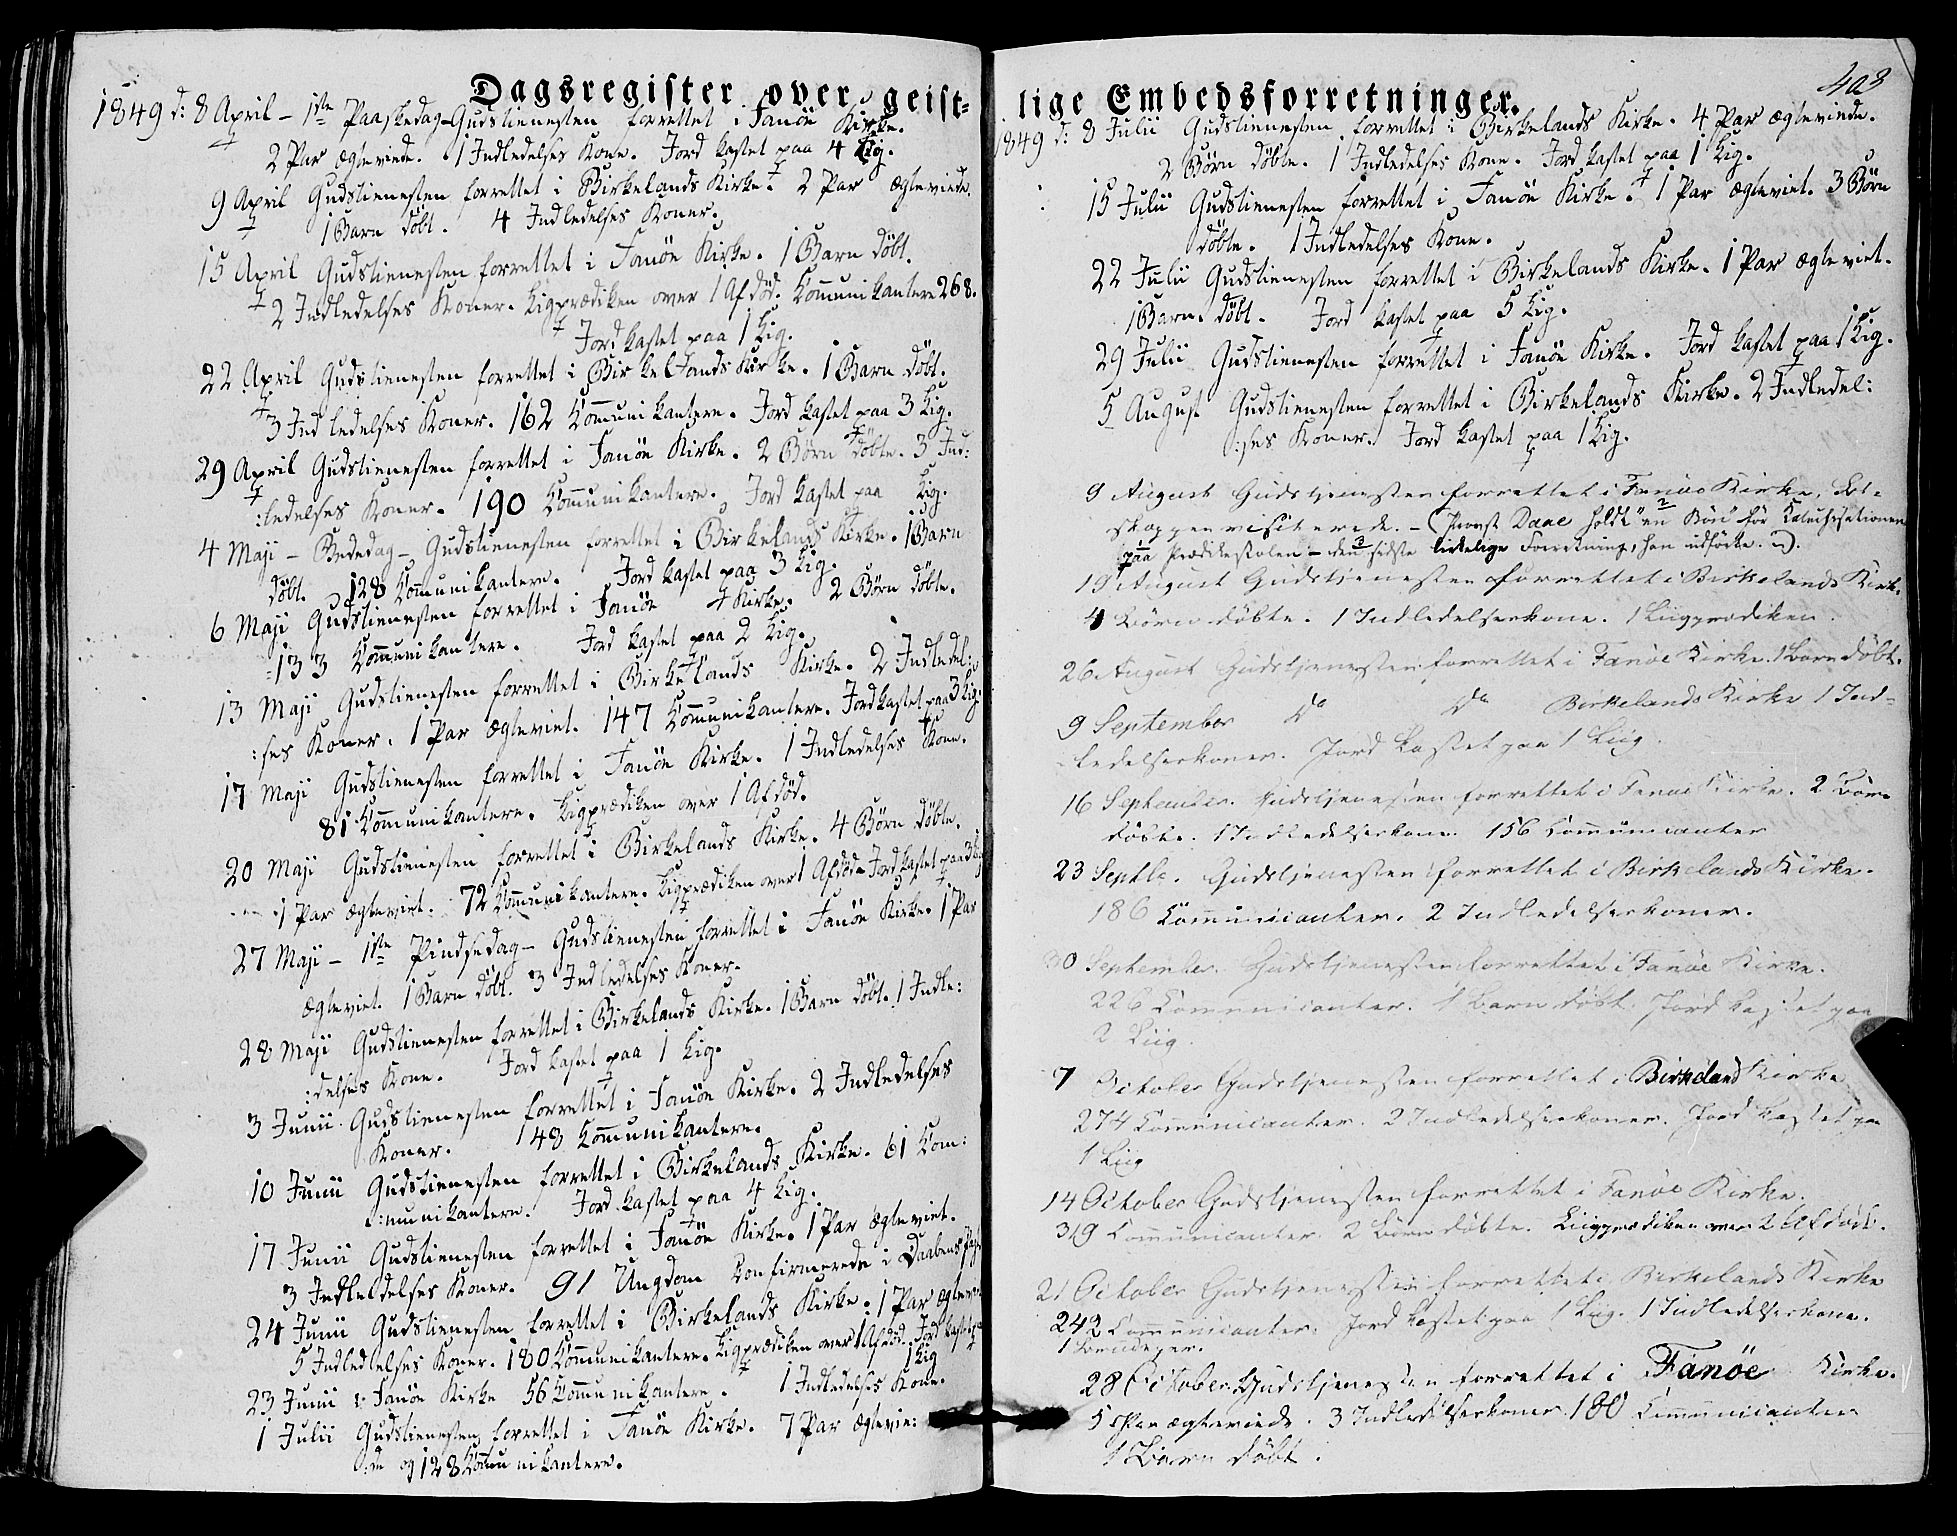 Dagsregister over geist-
1849 d: 8 April - 1ste Paaskedag - Gudstienesten forrettet i Fanöe Kirke.
2 Par ægteviede. 1 Indledelses Kone. Jord kastet paa 4 Lig.
9 April Gudstienesten forrettet i Birkelands Kirke. 2 Par ægteviede.
1 Barn döbt. 4 Indledelses Koner.
15 April Gudstienesten forrettet i Fanöe Kirke. 1 Barn döbt.
2 Indledelses Koner. Ligprædiken over 1 Afdöd. Communikantere 268.
Jord kastet paa 1 Lig.
22 April Gudstienesten forrettet i Birkelands Kirke. 1 Barn döbt.
3 Indledelses Koner. 162 Communikantere. Jord kastet paa 3 Lig.
29 April Gudstienesten forrettet i Fanöe Kirke. 2 Börn döbte. 3 Ind:
:ledelses Koner. 190 Communikantere. Jord kastet paa Lig.
4 Maji - Bededag - Gudstienesten forrettet i Birkelands Kirke. 1 Barn
döbt. 128 Communikantere. Jord kastet paa 3 Lig.
6 Maji Gudstienesten forrettet i Fanöe Kirke. 2 Börn döbte.
133 Communikantere. Jord kastet paa 2 Lig.
13 Maji Gudstienesten forrettet i Birkelands Kirke. 2 Indledel:
:ses Koner. 1 Par ægteviet. 147 Communikantere. Jord kastet paa 3 Lig.
17 Maji Gudstienesten forrettet i Fanöe Kirke. 1 Indledelses Kone.
81 Communikantere. Ligprædiken over 1 Afdöd.
20 Maji Gudstienesten forrettet i Birkelands Kirke. 4 Börn döbte.
1 Par ægteviet. 72 Communikantere. Ligprædiken over 1 Afdöd. Jord kastet paa 3 Lig
27 Maji - 1ste Pindsedag - Gudstienesten forrettet i Fanöe Kirke. 1 Par
ægteviet. 1 Barn döbt. 3 Indledelses Koner.
28 Maji Gudstienesten forrettet i Birkelands Kirke. 1 Barn döbt. 1 Indle:
:delses Kone. Jord kastet paa 1 Lig.
3 Junii Gudstienesten forrettet i Fanöe Kirke. 2 Indledelses
Koner. 148 Communikantere.
10 Junii Gudstienesten forrettet i Birkelands Kirke. 61 Com:
:munikantere. Jord kastet paa 4 Lig.
17 Junii Gudstienesten forrettet i Fanöe Kirke. 1 Par ægteviet.
3 Indledelses Koner. 91 Ungdom Confirmerede i Daabens
24 Junii Gudstienesten forrettet i Birkelands Kirke. 1 Par ægteviet
5 Indledelses Koner. 180 Communikantere. Ligprædiken over 1 Afdöd. Jord kastet paa
1 Lig
23 Junii i Fanöe Kirke 56 Communikantere. 1 Indledelses Kone.
1 Julii Gudstienesten forrettet i Fanöe Kirke. 7 Par ægtevie:
:de og 128 Communikantere.
lige Embedsforretninger.
403
1849 d: 8 Julii Gudstienesten forrettet i Birkelands Kirke. 4 Par ægteviede.
2 Börn döbte. 1 Indledelses Kone. Jord kastet paa 1 Lig.
15 Julii Gudstienesten forrettet i Fanöe Kirke. 1 Par ægteviet. 3 Börn
döbte. 1 Indledelses Kone.
22 Julii Gudstienesten forrettet i Birkelands Kirke. 1 Par ægteviet.
1 Barn döbt. Jord kastet paa 5 Lig.
29 Julii Gudstienesten forrettet i Fanöe Kirke. Jord kastet paa 1 Lig.
5 August Gudstienesten forrettet i Birkelands Kirke. 2 Indledel:
:ses Koner. Jord kastet paa 1 Lig.
9 August Gudstjenesten forrettet i Fanöe Kirke,
visiterede. - (Provst Daae holdt en Bön för Katechisationen
paa Prædikestolen - den sidste kirkelige Forretning, han udförte.)
19 August Gudstjenesten forrettet i Birkelands Kirk.
4 Börn döbte. 1 Indledelseskone. 1 Liigprædiken.
26 August Gudstjenesten forrettet i Fanöe Kirke. 1 Barn döbt.
9 September do do Birkelands Kirke 1 Ind-
ledelseskoner. Jord kastet paa 1 Liig.
16 September. Gudstjenesten forrettet i Fanöe Kirke. 2 Börn
döbte. 1 Indledelseskone. 156 Communicanter
23 Septbr. Gudstjenesten forrettet i Birkelands Kirke.
186 Communicanter. 2 Indledelseskoner.
30 September. Gudstjenesten forrettet i Fanöe Kirke.
226 Communicanter. 1 Barn döbt. Jord kastet paa
2 Liig.
7 October Gudstjenesten forrettet i Birkeland Kirke
274 Communicanter. 2 Indledelseskoner. Jord kastet paa
1 Liig
14 October Gudstjenesten forrettet i Fanöe Kirke.
319 Communicanter. 2 Börn döbte. Liigprædiken over 2 Afdöde.
21 October Gudstjenesten forrettet i Birkelands Kirke
242 Communicanter. Jord kastet paa 1 Liig. 1 Indledelseskone.
1
28 October. Gudstjenesten forrettet i Fanöe Kirke.
5 Par ægteviede. 3 Indledelseskoner. 180 Communicanter
1 Barn döbt.